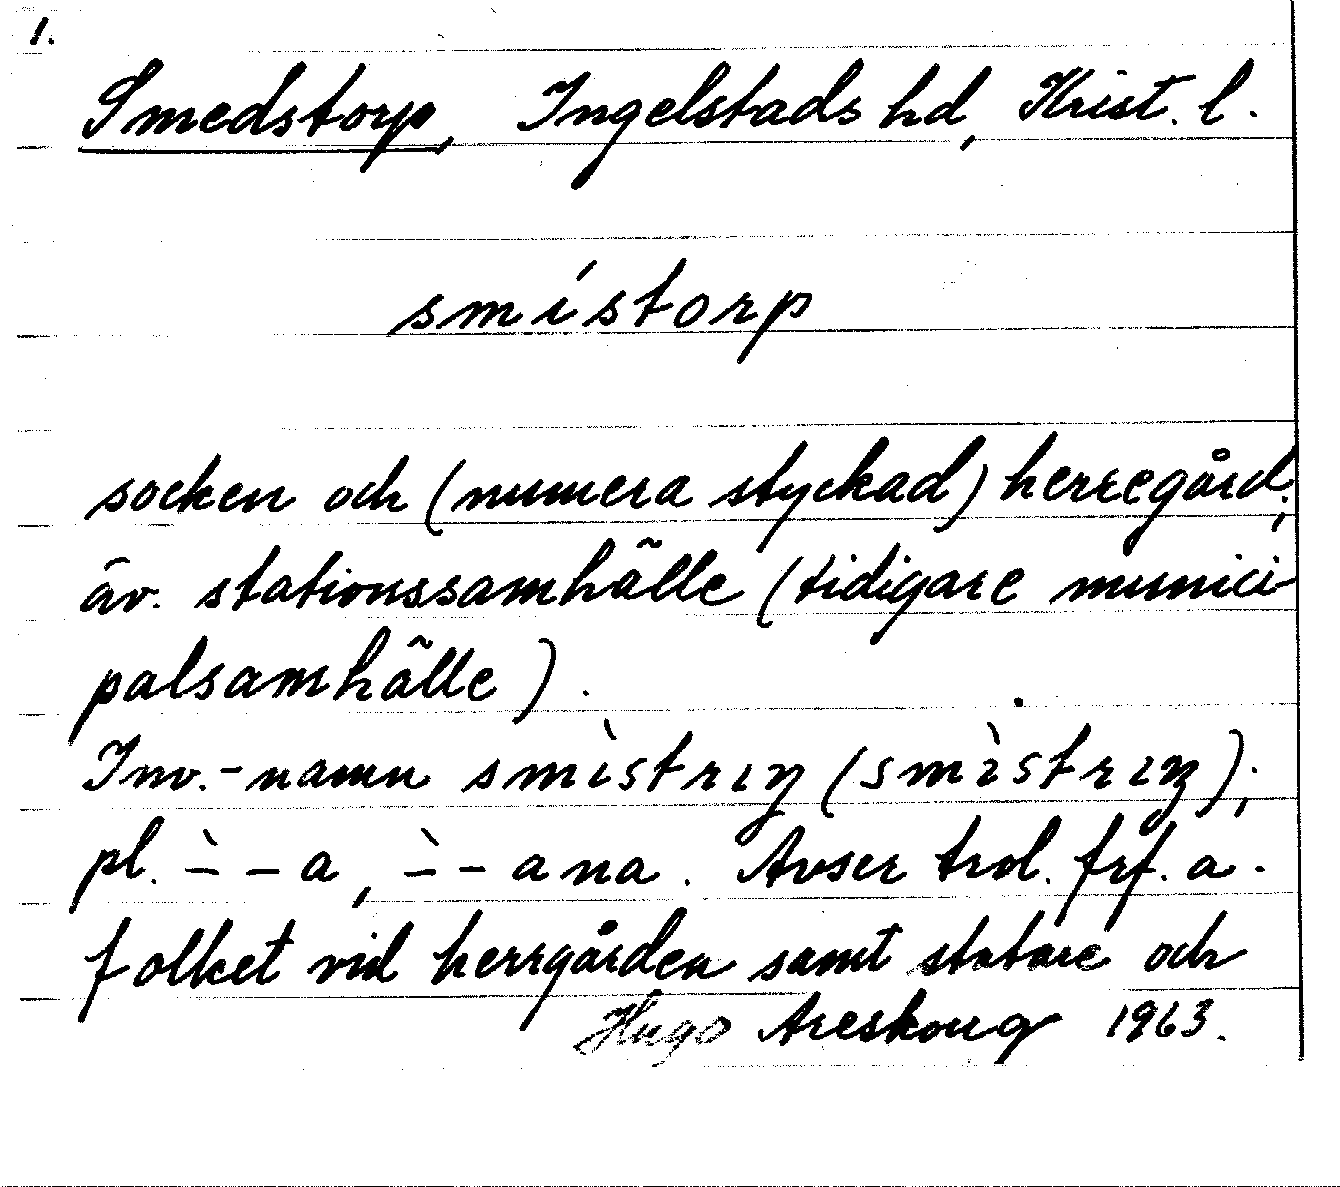 1.
Smedstorp, Ingelstads hd, Krist. l.
smístorp
socken och (numera styckad) herregård;
äv. stationssamhälle (tidigare munici-
palsamhälle).
Inv.-namn smìstrıŋ (smìstrıŋ);
pl. ὶ - - a, ὶ - - ana. Avser trol. frf. a.
folket vid herrgården samt statare och
Hugo Areskoug 1963.